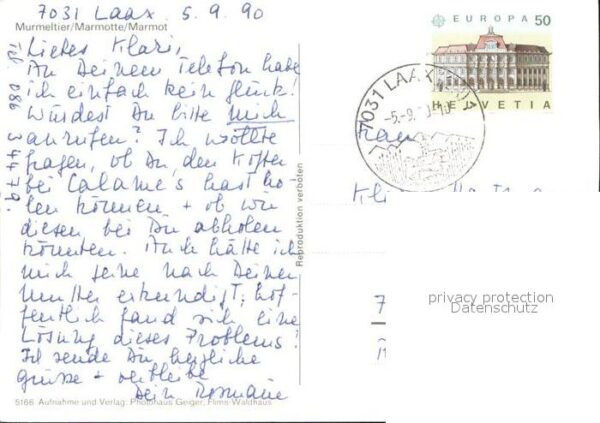 7031 Laax 5.9.90
Murmeltier/Marmotte/Marmot
Liebes Klari,
An Deinem Telefon habe
ich einfach kein Glück!
Würdest Du bitte mich
anrufen? Ich wollte
fragen, ob Du den Koffer
bei Calame's hast ho-
len können + ob wir
diesen bei Du abholen
könnten. Auch hätte ich
mich gerne nach Deiner
Mutter erkundigt; hof-
fentlich fand sich eine
Lösung dieses Problems?
Ich sende Dir herzliche
Grüsse + verbleibe
Dein Romaine
5166 Aufnahme und Verlag: Photohaus Geiger, Flims-Waldhaus
Tel. 086
Reproduktion verboten
EUROPA 50
HELVETIA
7031 LAAX
-5.-9.
Frau
privacy protection
Datenschutz
7